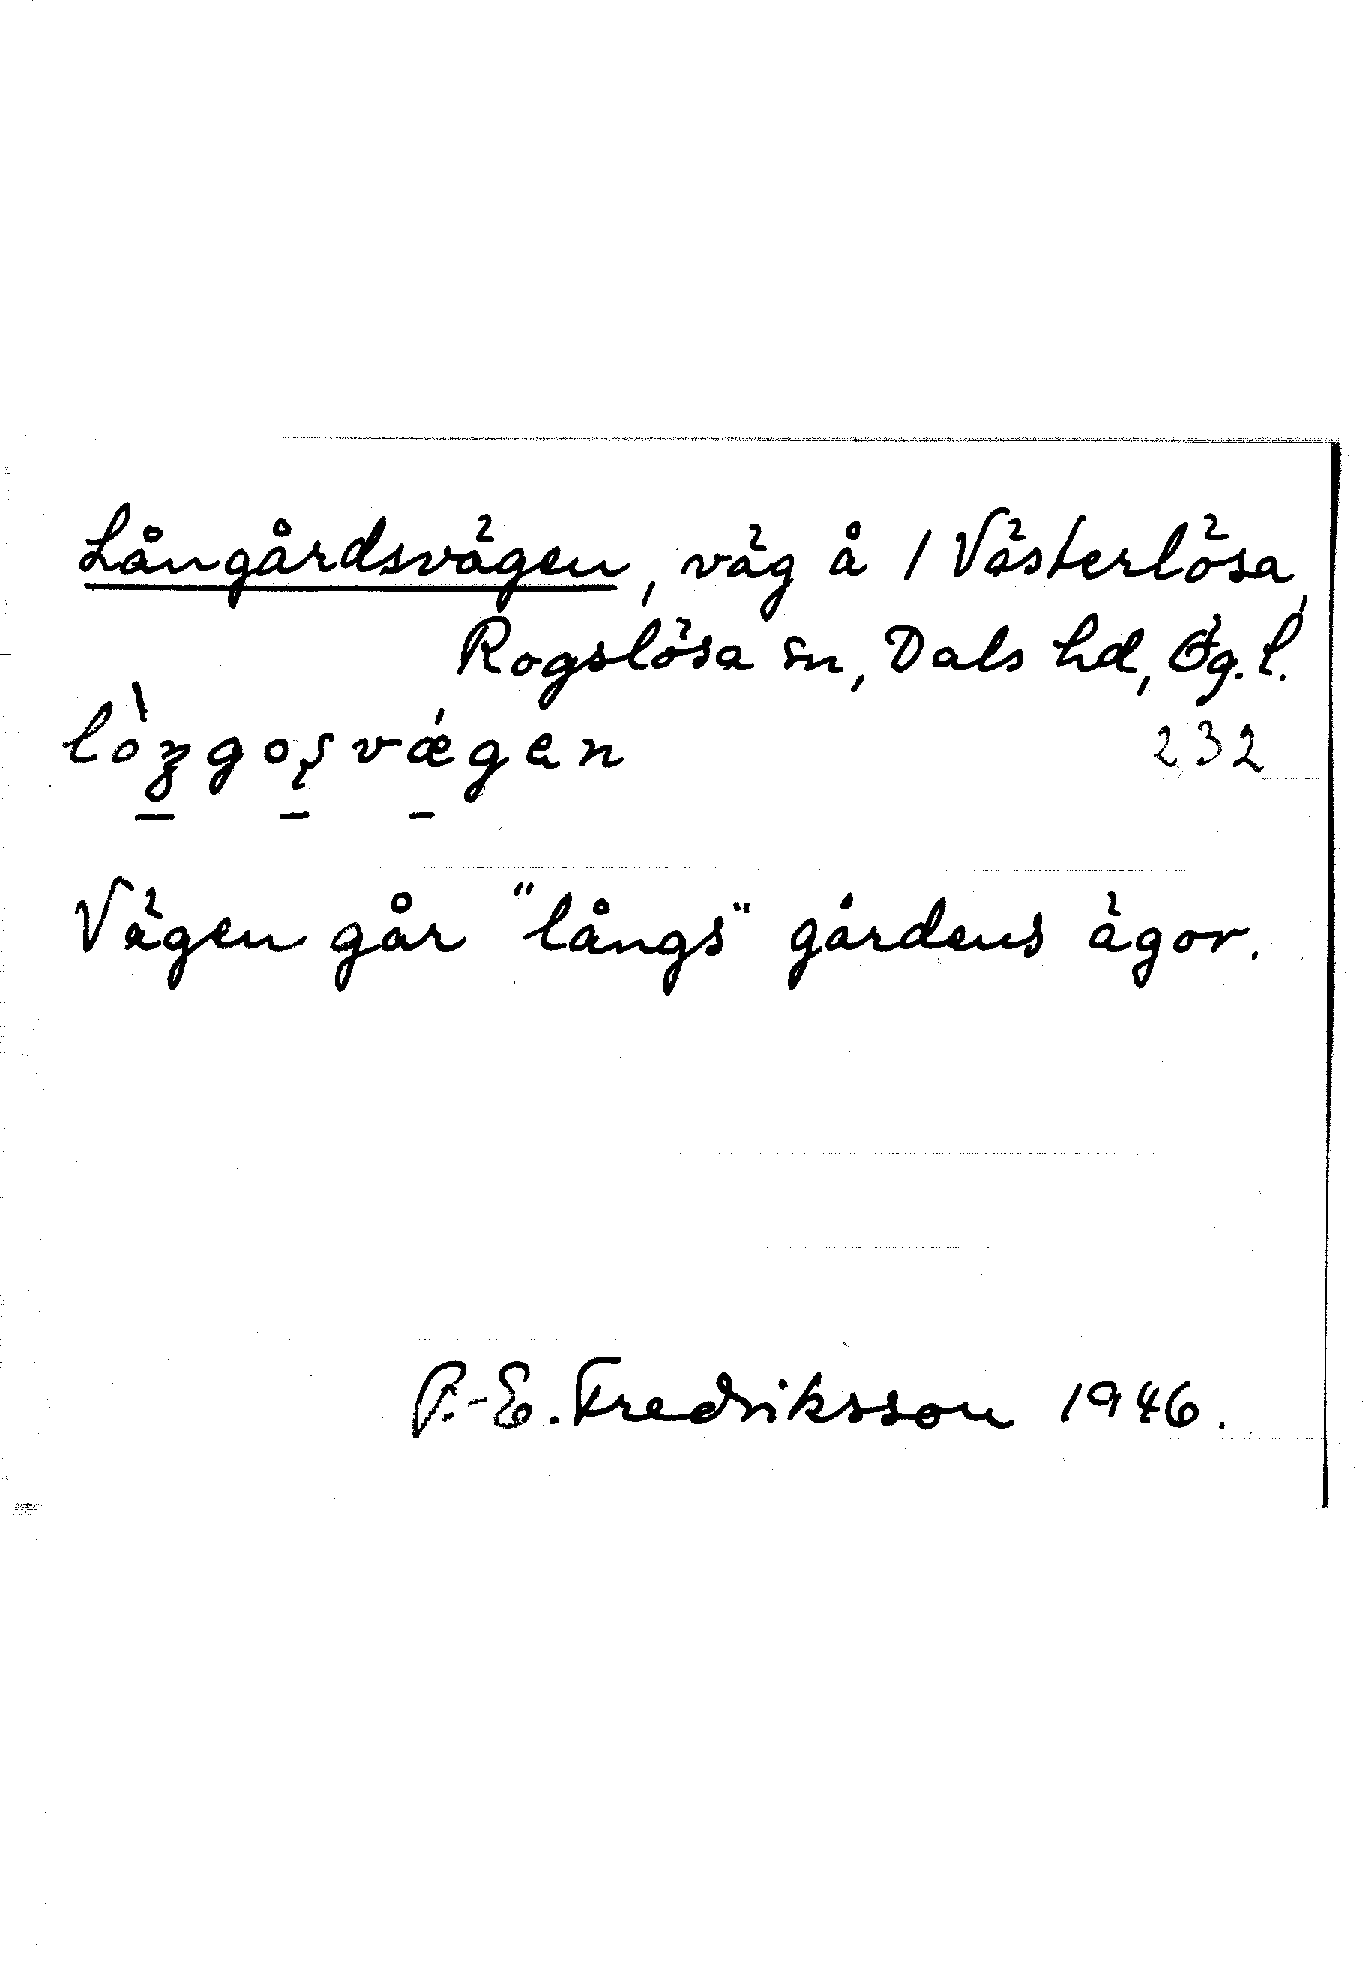 Långårdsvägen, väg å 1 Västerlösa,
Rogslösa sn, Dals hd, Ög. l.
232
Vägen går "långs" gårdens ägor.
P.-E. Fredriksson 1946.